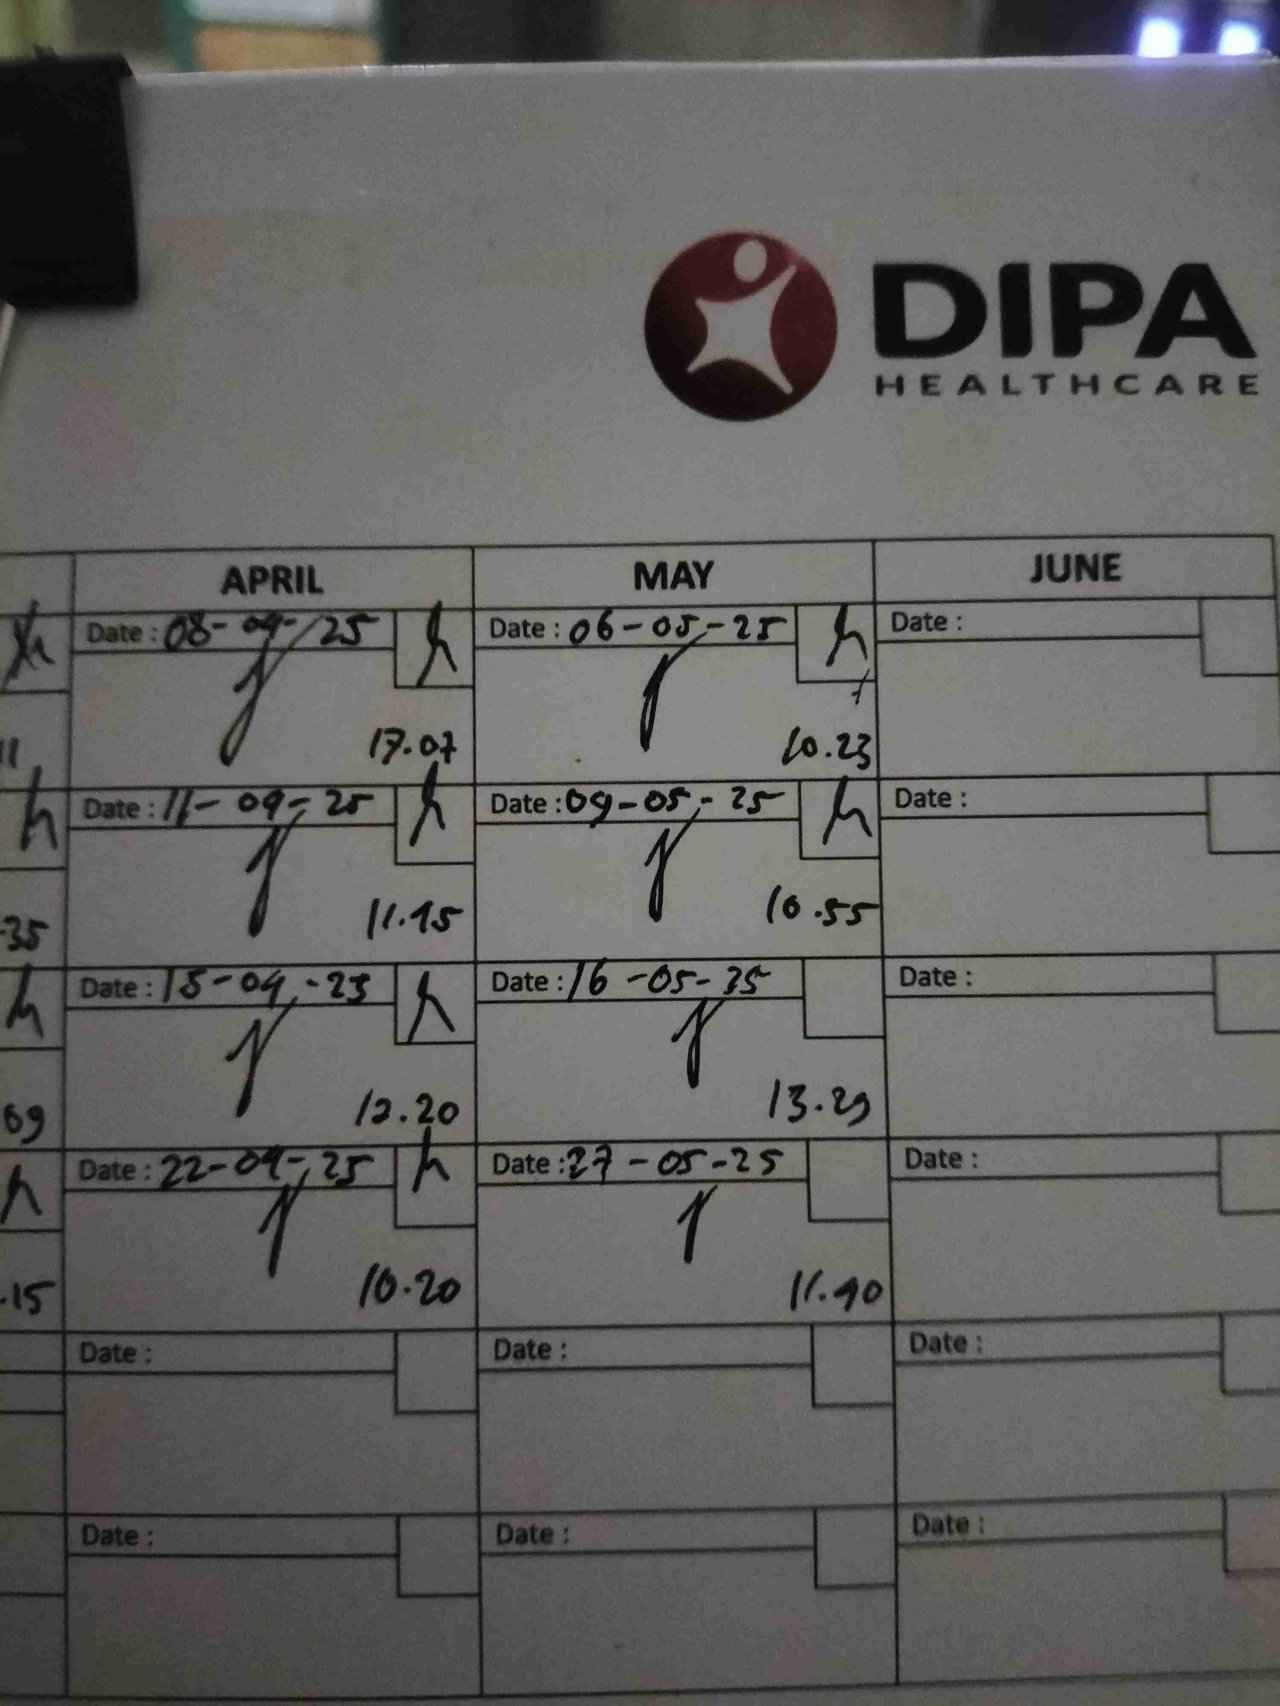 DIPA
HEALTHCARE
APRIL MAY JUNE
Date : 08-04-25 Date : 06-05-25 Date :
11 17.07 10.23
Date : 11-04-25 Date : 09-05-25 Date :
.35 11.45 10.55
Date : 15-04-25 Date : 16-05-25 Date :
09 12.20 13.29
Date : 22-04-25 Date : 27-05-25 Date :
.15 10.20 11.40
Date : Date : Date :
Date : Date : Date :